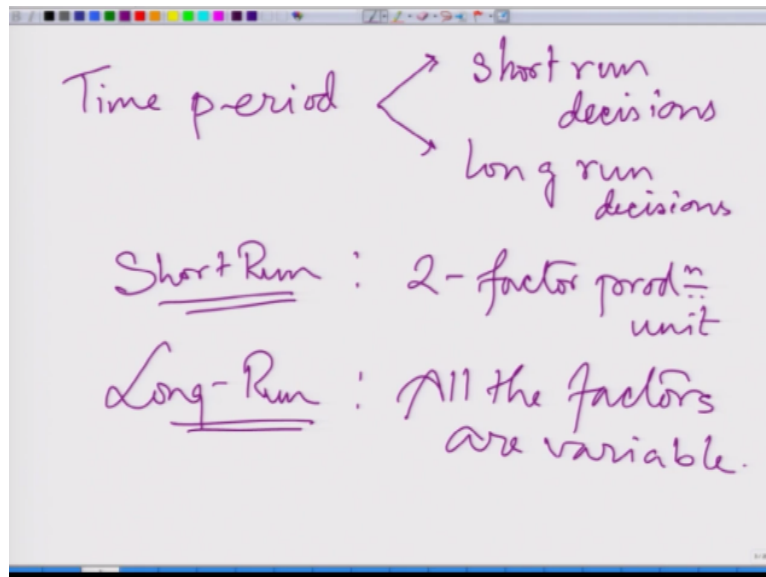 Time period
short run
decisions
Long run
decisions
Short Run : 2-factor prodⁿ
unit
Long-Run : All the factors
are variable.